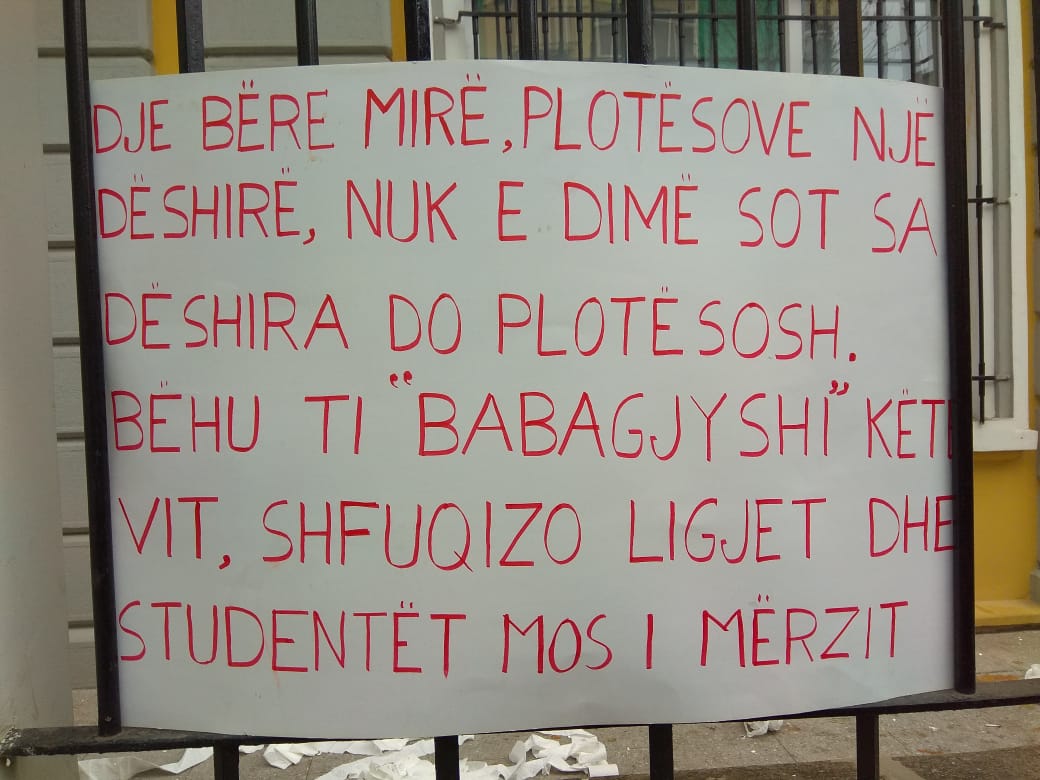 DJE BËRE MIRË, PLOTËSOVE NJË
DËSHIRË, NUK E DIMË SOT SA
DËSHIRA DO PLOTËSOSH.
BËHU TI "BABAGJYSHI" KËTË
VIT, SHFUQIZO LIGJET DHE
STUDENTËT MOS I MËRZIT